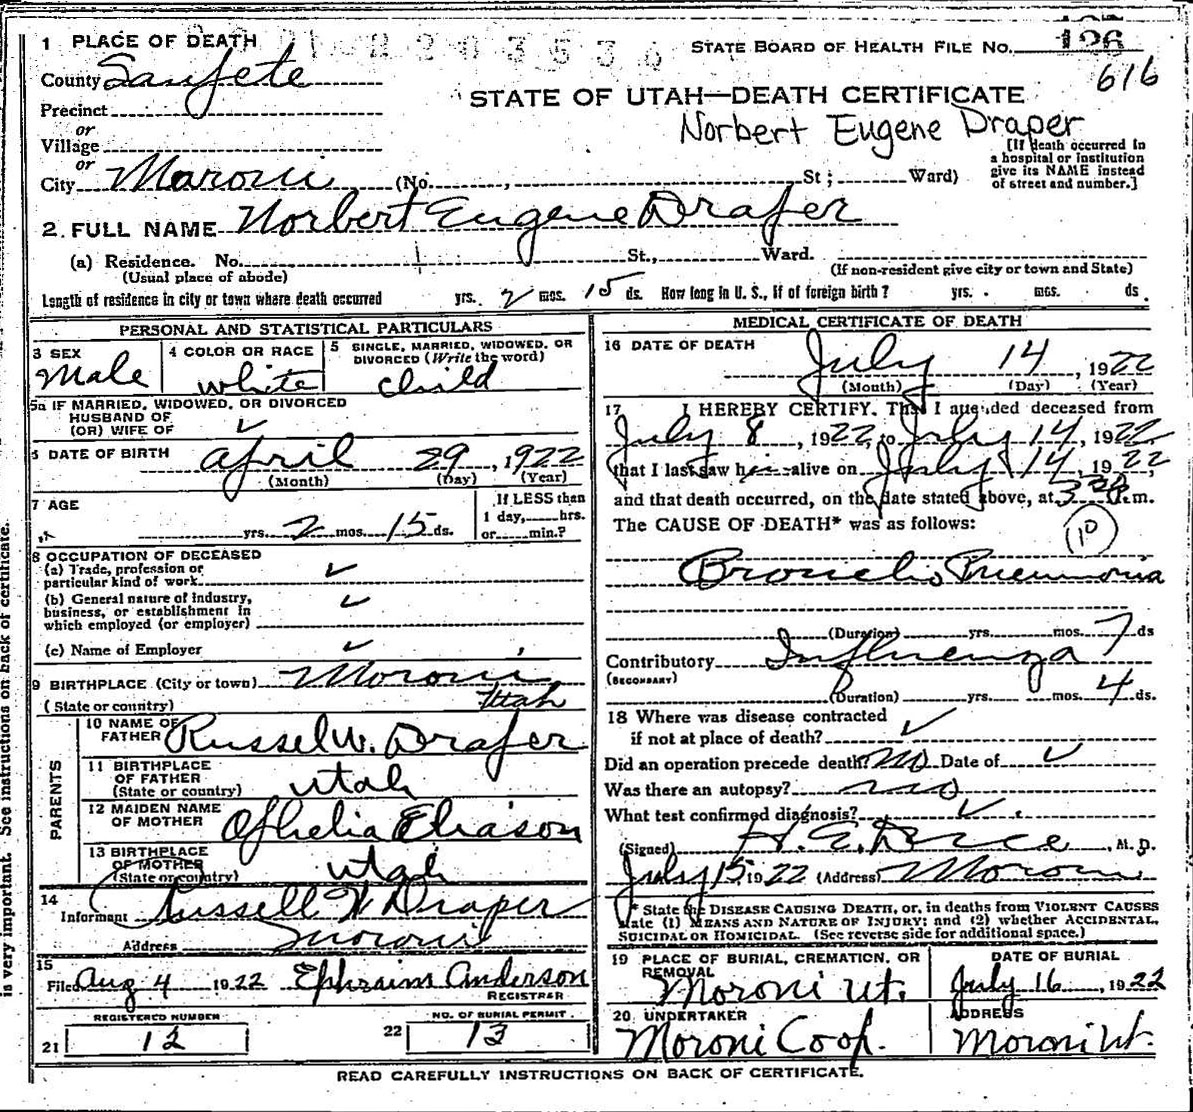 1 PLACE OF DEATH
STATE BOARD OF HEALTH FILE NO. 126
County Sanpete
616
STATE OF UTAH—DEATH CERTIFICATE
Precinct
Norbert Eugene Draper
or
Village
or
[If death occurred in a hospital or institution give its NAME instead of street and number.]
City Moroni (No. , St; Ward)
2. FULL NAME Norbert Eugene Draper
(a) Residence. No. St., Ward.
(Usual place of abode) (If non-resident give city or town and State)
Length of residence in city or town where death occurred yrs. 2 mos. 15 ds. How long in U. S., if of foreign birth? yrs. mos. ds.
PERSONAL AND STATISTICAL PARTICULARS
3 SEX
Male
4 COLOR OR RACE
white
5 SINGLE, MARRIED, WIDOWED, OR
DIVORCED (Write the word)
child
5a IF MARRIED, WIDOWED, OR DIVORCED
HUSBAND OF
(OR) WIFE OF ✓
6 DATE OF BIRTH April 29, 1922
(Month) (Day) (Year)
7 AGE
yrs. 2 mos. 15 ds.
If LESS than
1 day, hrs.
or min.?
8 OCCUPATION OF DECEASED
(a) Trade, profession or
particular kind of work ✓
(b) General nature of industry,
business, or establishment in
which employed (or employer) ✓
(c) Name of Employer ✓
9 BIRTHPLACE (City or town) Moroni
(State or country) Utah
PARENTS
10 NAME OF
FATHER Russel W. Draper
11 BIRTHPLACE
OF FATHER
(State or country) Utah
12 MAIDEN NAME
OF MOTHER Ophelia Eliason
13 BIRTHPLACE
OF MOTHER
(State or country) Utah
14
Informant Russell W Draper
Address Moroni
15
Filed Aug 4 1922 Ephraim Anderson
REGISTRAR
REGISTERED NUMBER
21 12
NO. OF BURIAL PERMIT
22 13
MEDICAL CERTIFICATE OF DEATH
16 DATE OF DEATH
July 14, 1922
(Month) (Day) (Year)
17 I HEREBY CERTIFY, That I attended deceased from
July 8, 1922, to July 14, 1922
that I last saw him alive on July 14, 1922
and that death occurred, on the date stated above, at 3 30 P.m.
The CAUSE OF DEATH* was as follows:
10
Broncho Pneumonia
(Duration) yrs. mos. 7 ds
Contributory Influenza
(SECONDARY)
(Duration) yrs. mos. 4 ds.
18 Where was disease contracted
if not at place of death? ✓
Did an operation precede death? No Date of ✓
Was there an autopsy? no
What test confirmed diagnosis? ✓
(Signed) H. E. , M. D.
July 15 1922 (Address) Moroni
* State the DISEASE CAUSING DEATH, or, in deaths from VIOLENT CAUSES
state (1) MEANS AND NATURE OF INJURY; and (2) whether ACCIDENTAL,
SUICIDAL OR HOMICIDAL. (See reverse side for additional space.)
19 PLACE OF BURIAL, CREMATION, OR
REMOVAL
Moroni Ut.
DATE OF BURIAL
July 16, 1922
20 UNDERTAKER
Moroni Coop.
ADDRESS
Moroni Ut.
READ CAREFULLY INSTRUCTIONS ON BACK OF CERTIFICATE.
is very important. See instructions on back of certificate.